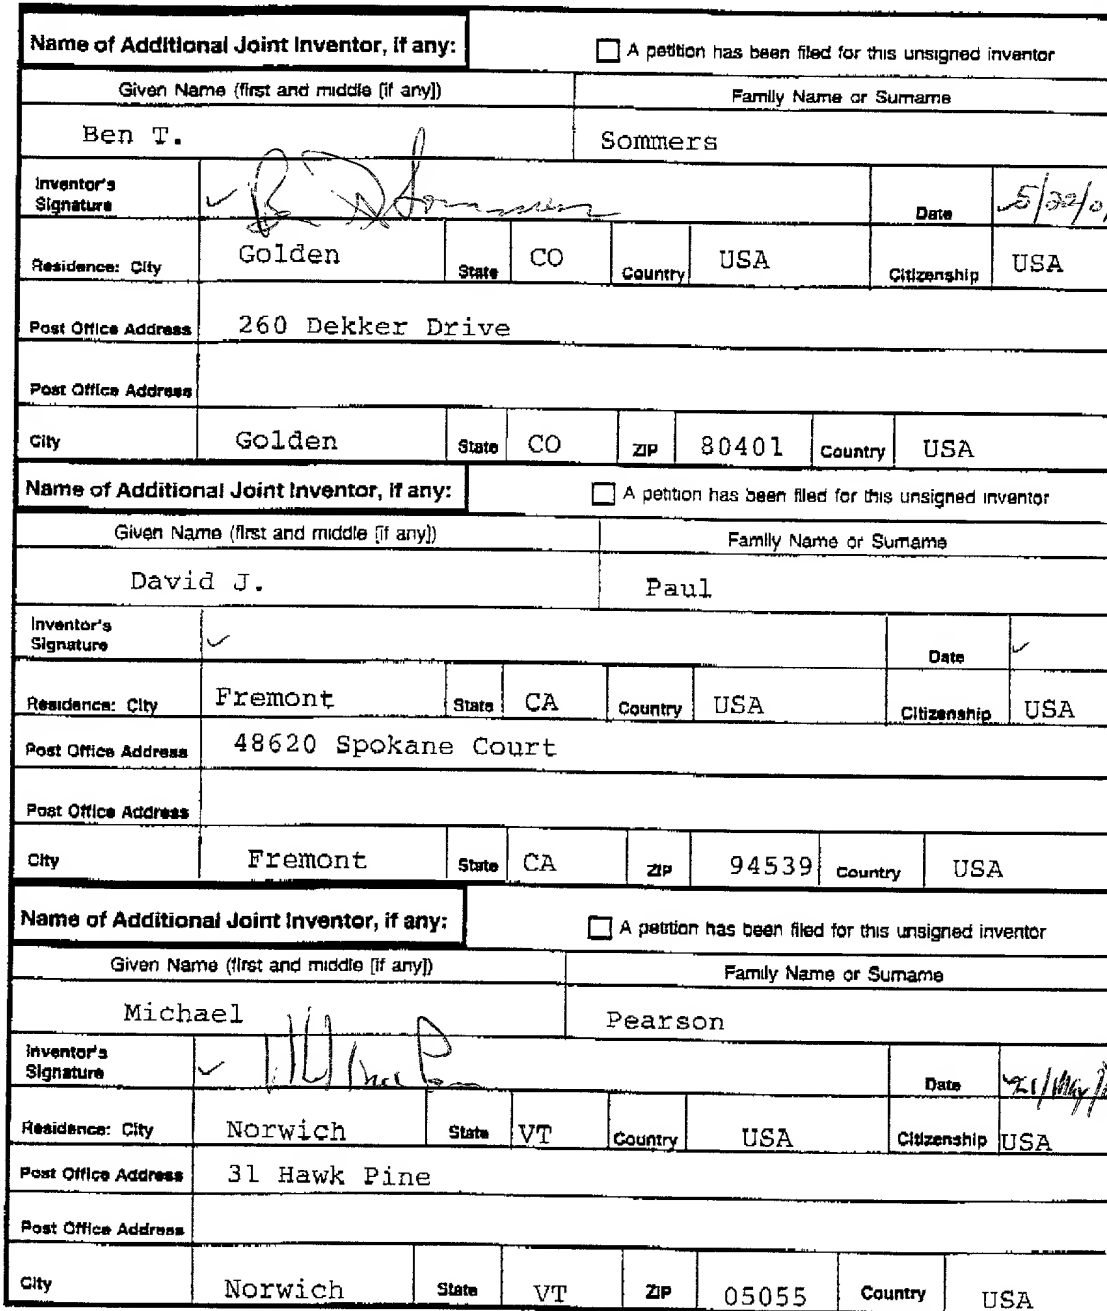 Name of Additional Joint Inventor, if any: A petition has been filed for this unsigned inventor
Given Name (first and middle [if any]) Family Name or Surname
Ben T. Sommers
Inventor's Signature Date 5/22/0
Residence: City Golden State CO Country USA Citizenship USA
Post Office Address 260 Dekker Drive
Post Office Address
City Golden State CO ZIP 80401 Country USA
Name of Additional Joint Inventor, if any: A petition has been filed for this unsigned inventor
Given Name (first and middle [if any]) Family Name or Surname
David J. Paul
Inventor's Signature Date
Residence: City Fremont State CA Country USA Citizenship USA
Post Office Address 48620 Spokane Court
Post Office Address
City Fremont State CA ZIP 94539 Country USA
Name of Additional Joint Inventor, if any: A petition has been filed for this unsigned inventor
Given Name (first and middle [if any]) Family Name or Surname
Michael Pearson
Inventor's Signature Date 21/May/
Residence: City Norwich State VT Country USA Citizenship USA
Post Office Address 31 Hawk Pine
Post Office Address
City Norwich State VT ZIP 05055 Country USA